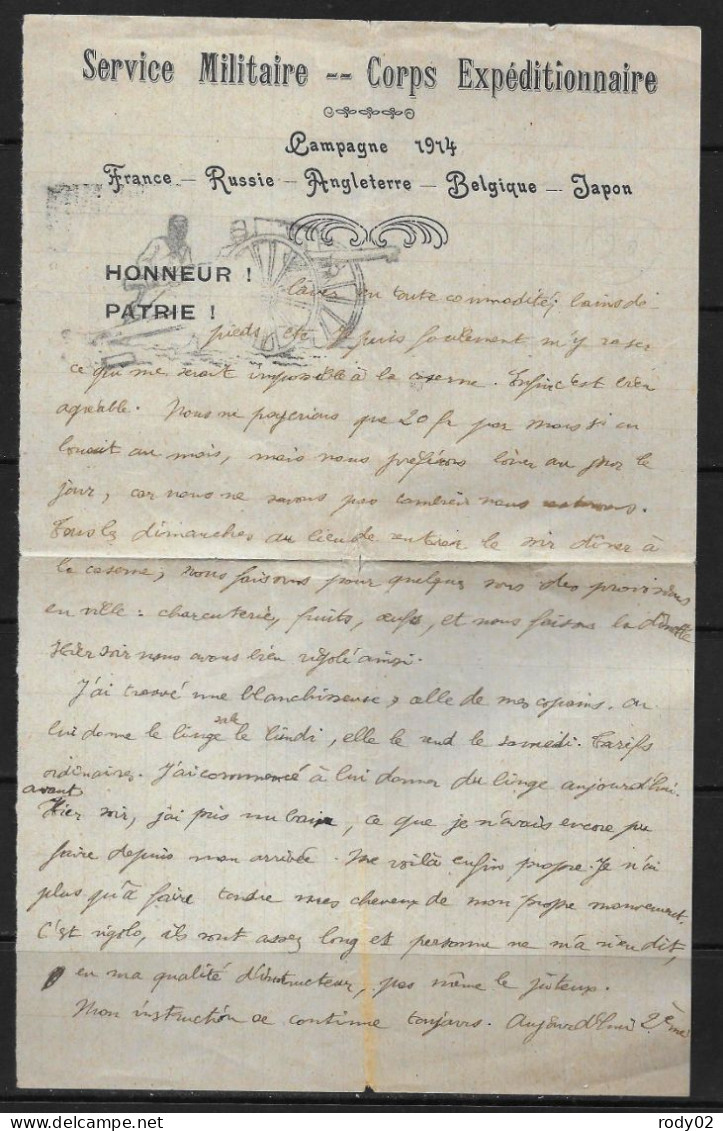 Service Militaire -- Corps Expéditionnaire
Campagne 1914
France — Russie — Angleterre — Belgique — Japon
HONNEUR !
PATRIE !
laver en toute commodité, bains de
pieds etc puis seulement m'y raser
ce qui me serait impossible à la caserne. Enfin c'est bien
agréable. Nous ne payerions que 20 fr par mois si on
louait au mois, mais nous préférons louer au jour le
jour, car nous ne savons pas combien nous
Tous les dimanches au lieu de rentrer le soir dîner à
la caserne, nous faisons pour quelques sous des provisions
en ville : charcuterie, fruits, œufs, et nous faisons la dînette
Hier soir nous avons bien rigolé ainsi.
J'ai trouvé une blanchisseuse, celle de mes copains. on
lui donne le linge sale le lundi, elle le rend le samedi. Tarifs
ordinaires. J'ai commencé à lui donner du linge aujourd'hui.
avant
Hier soir, j'ai pris un bain, ce que je n'avais encore pu
faire depuis mon arrivée. Me voilà enfin propre. Je n'ai
plus qu'à faire tondre mes cheveux de mon propre mouvement.
C'est rigolo, ils sont assez long et personne ne m'a rien dit,
en ma qualité d'instructeur, pas même le juteux.
Mon instruction se continue toujours. Aujourd'hui 2ème
rody02